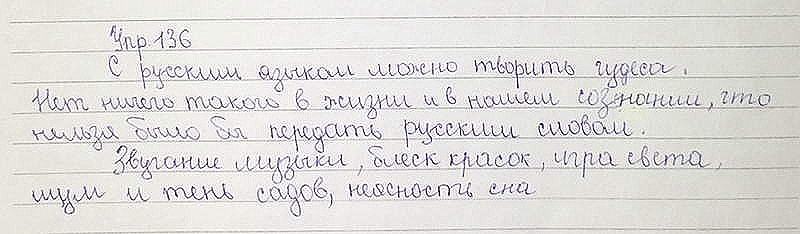 Упр. 136
С русским языком можно творить чудеса.
Нет ничего такого в жизни и в нашем сознании, что
нельзя было бы передать русским словом.
Звучание музыки, блеск красок, игра света,
шум и тень садов, неясность сна